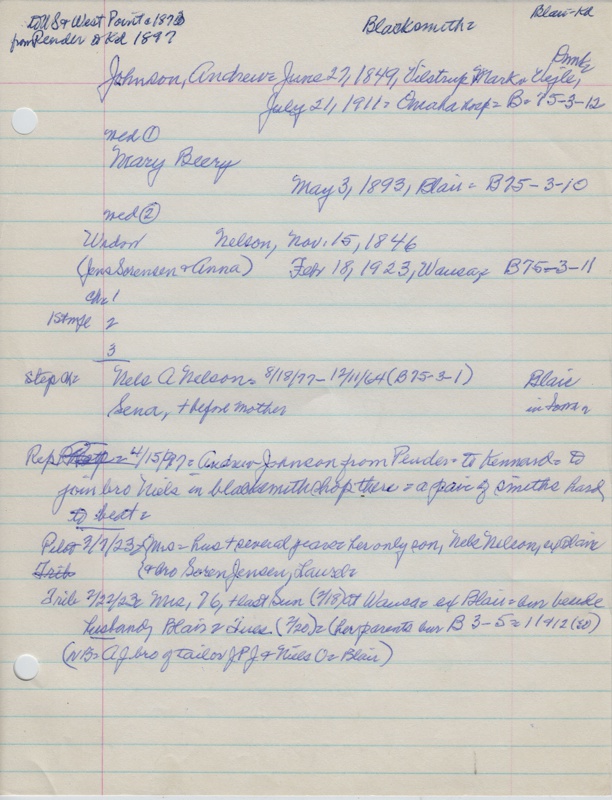 to US & West Point = 1873
from Pender to Kd 1897
Blacksmith=
Blair-Kd
Johnson, Andrew = June 27, 1849, Vilstrup Mark, Vejle,
July 21, 1911 = Omaha hosp = B = 75-3-12
med ①
Mary Beery
May 3, 1893, Blair = B75-3-10
med ②
Widow Nelson, Nov. 15, 1846
(Jens Sorensen & Anna) Feb 18, 1923, Wausa, B75-3-11
Ch = 1
1st mge 2
3
Step Ch = Nels A Nelson = 8/18/77 - 12/11/64 (B75-3-1) Blair
Sena, + before mother in
Rep 4/15/97 = Andrew Johnson from Pender = to Kennard = to
join bro Niels in blacksmith shop there = a pair of smiths hard
to beat =
Pilot 2/ /23 = Mrs = hus + several years = her only son, Nels Nelson, ex Blair
& bro Soren Jensen, Laurel =
Trib
Trib 2/22/23 = Mrs, 76, + last Sun (2/18) at Wausa = ex Blair = bur beside
husband, Blair = Tues (2/20) = (her parents bur B 3-5 = 11 & 12 (20)
(NB = A J bro of tailor J P J & Niels O = Blair)